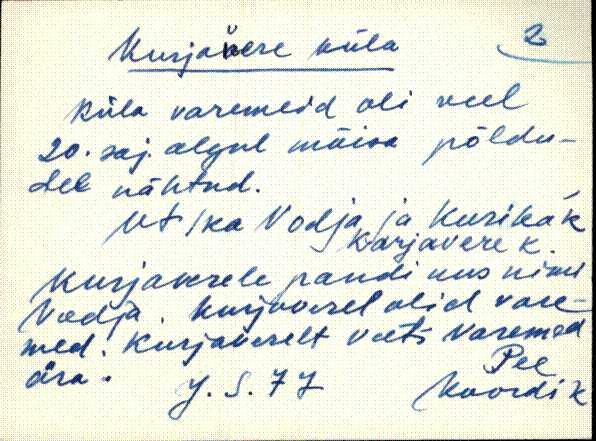 Kurjavere küla
2
Küla varemeid oli veel
20. saj. algul mõisa põldu-
del nähtud.
Vt ka Vodja ja Kurika k
Karjavere k.
Kurjaverele pandi uus nimi
Vodja. Kurjaverel olid vare-
med. Kurjaverelt veeti varemed
ära.
Pee
Koordi k